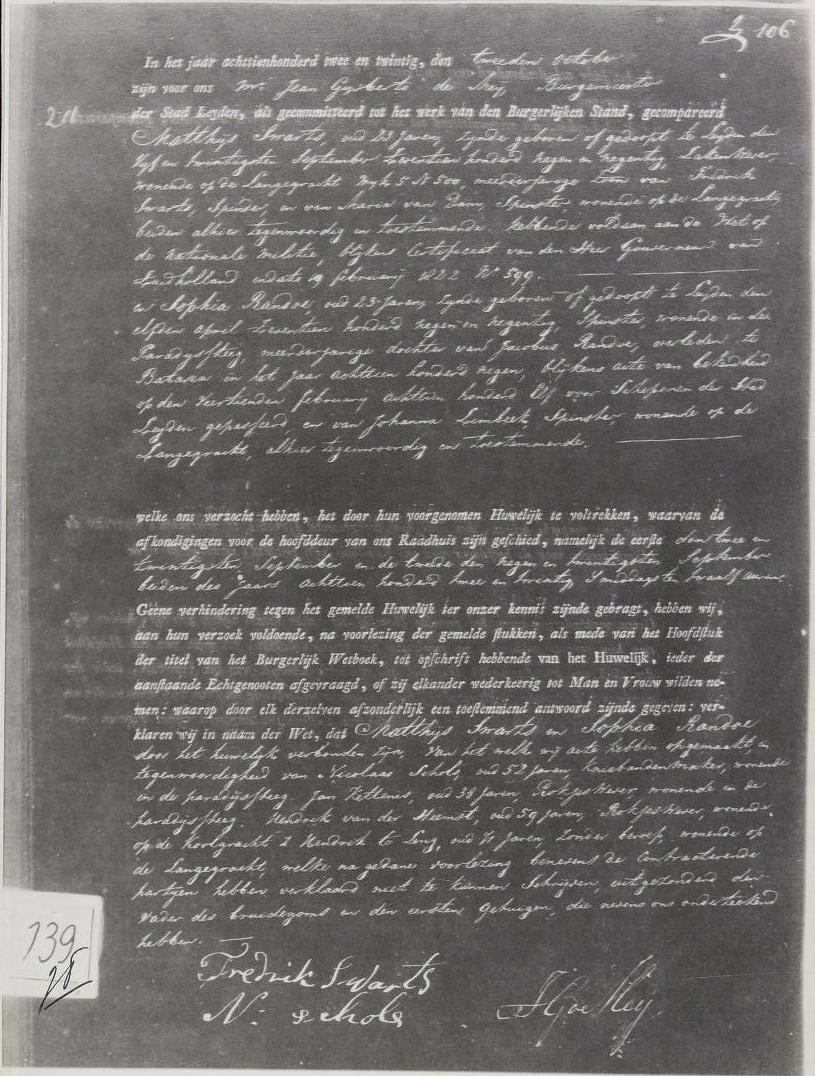 106
In het jaar achttienhonderd twee en twintig, den tweeden october
zijn voor ons Mr. Jean Gysberto de Mey, Burgemeester
der Stad Leyden, als gecommitteerd tot het werk van den Burgerlijken Stand, gecompareerd
Matthijs Swarts, oud 23 Jaren, zynde geboren of gedoopt te Leyden den
vyf en twintigsten September zeventien honderd negen en negentig, Lakenwever
wonende op de Langegracht Wyk 5 N 500, meerderjarige Zoon van Fredrik
Swarts, Spinder, en van Maria van Dam, Spinster wonende op de Langegracht,
beiden alhier tegenwoordig en toestemmende. Hebbende voldaan aan de Wet op
de nationale Militie, blykens Certificaat van den Heer Gouverneur van
Zuidholland in date 19 february 1822 N° 599.
en Sophia Randoe, oud 23 Jaren, zynde geboren of gedoopt te Leyden den
elfden april zeventien honderd negen en negentig, Spinster, wonende in de
Paradyssteeg, meerderjarige dochter van Jacobus Randoe, overleden te
in het jaar achttien honderd negen, blykens acte van bekendheid
op den veertienden february achttien honderd Elf voor Schepenen der Stad
Leyden gepasseerd, en van Johanna Limbeek, Spinster, wonende op de
Langegracht, alhier tegenwoordig en toestemmende.
welke ons verzocht hebben, het door hun voorgenomen Huwelijk te voltrekken, waarvan de
afkondigingen voor de hoofddeur van ons Raadhuis zijn geschied, namelijk de eerste den twee en
twintigsten September en de tweede den negen en twintigsten September
beiden des jaars achttien honderd twee en twintig smiddags ten twaalf uren.
Geene verhindering tegen het gemelde Huwelijk ter onzer kennis zijnde gebragt, hebben wij,
aan hun verzoek voldoende, na voorlezing der gemelde stukken, als mede van het Hoofdstuk
der titel van het Burgerlijk Wetboek, tot opschrift hebbende van het Huwelijk, ieder der
aanstaande Echtgenooten afgevraagd, of zij elkander wederkeerig tot Man en Vrouw wilden ne-
men: waarop door elk derzelven afzonderlijk een toestemmend antwoord zijnde gegeven: ver-
klaren wij in naam der Wet, dat Matthijs Swarts en Sophia Randoe
door het huwelyk verbonden zyn, Van het welk wij acte hebben opgemaakt, in
tegenwoordigheid van Nicolaas Schols, oud 52 Jaren, wonende
in de paradijssteeg Jan Kettenis, oud 38 Jaren, Rokjeswever, wonende in de
paradysssteeg. Hendrik van der Heemst, oud 59 Jaren, Rokjeswever, wonende
op de & Hendrik te Leng, oud 71 Jaren, zonder beroep, wonende op
de Langegracht, welke na gedane voorlezing benevens de Contracterende
partyen hebben verklaard niet te kunnen Schryven, uitgezonderd den
vader des bruidegoms en den eersten Getuigen, die nevens ons onderteekend
hebben.
Fredrik Swarts
N: schols
139